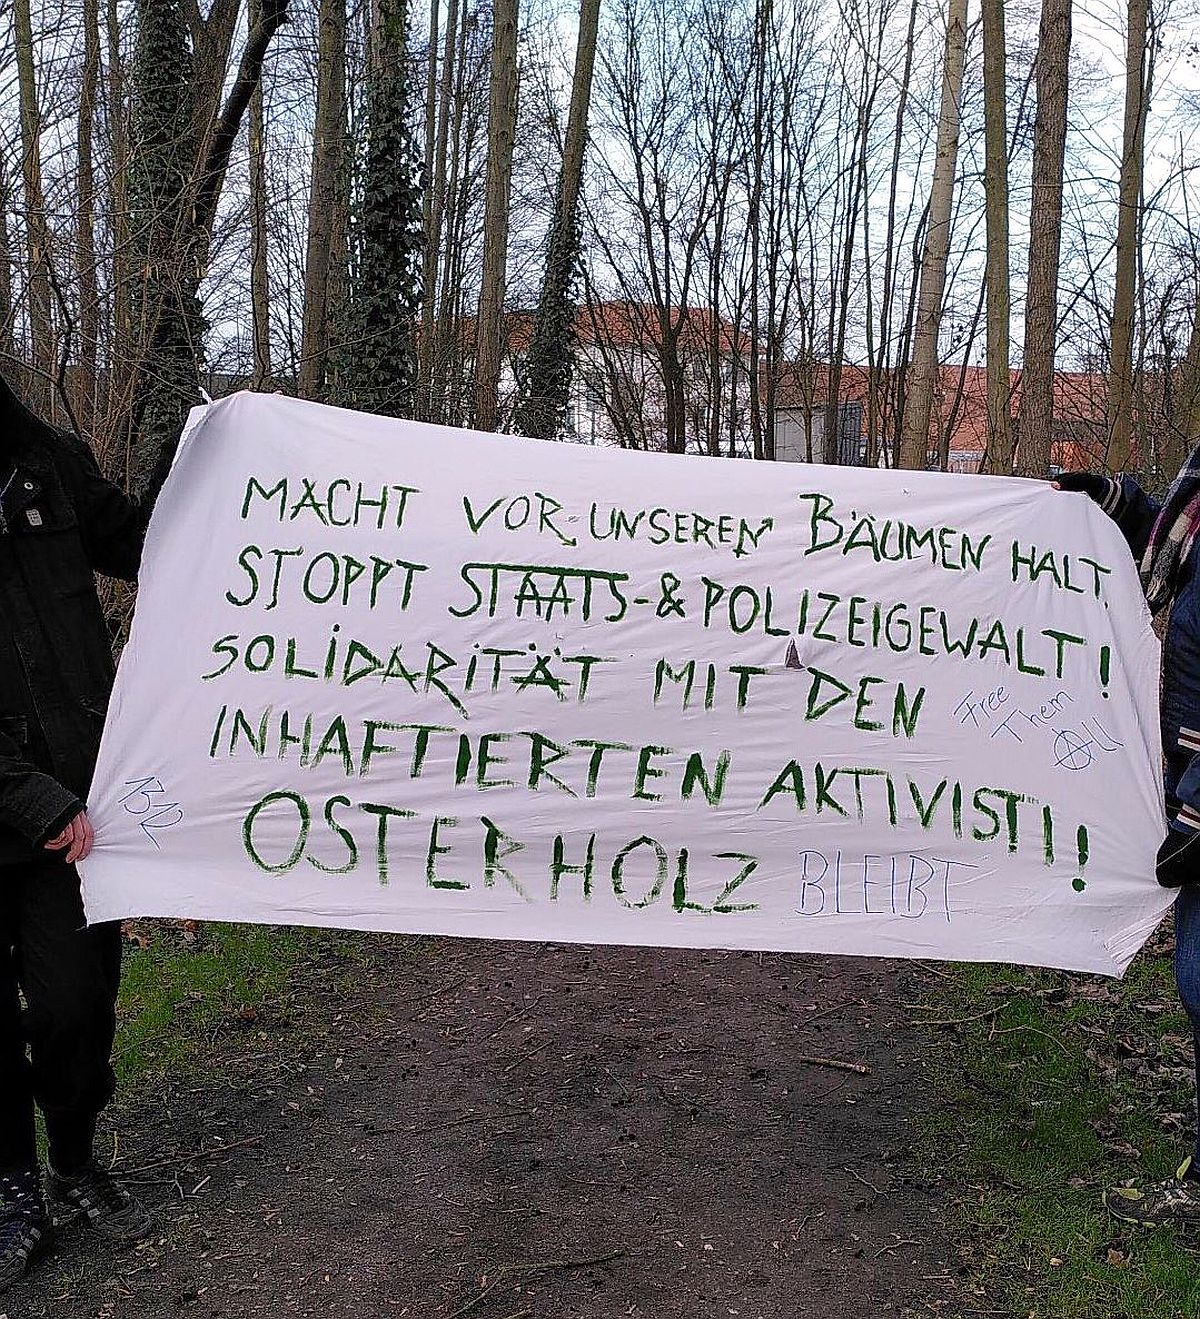 MACHT VOR UNSEREN BÄUMEN HALT.
STOPPT STAATS-&POLIZEIGEWALT!
SOLIDARITÄT MIT DEN
INHAFTIERTEN AKTIVISTI!
OSTERHOLZ BLEIBT
Free
Them
All
1312